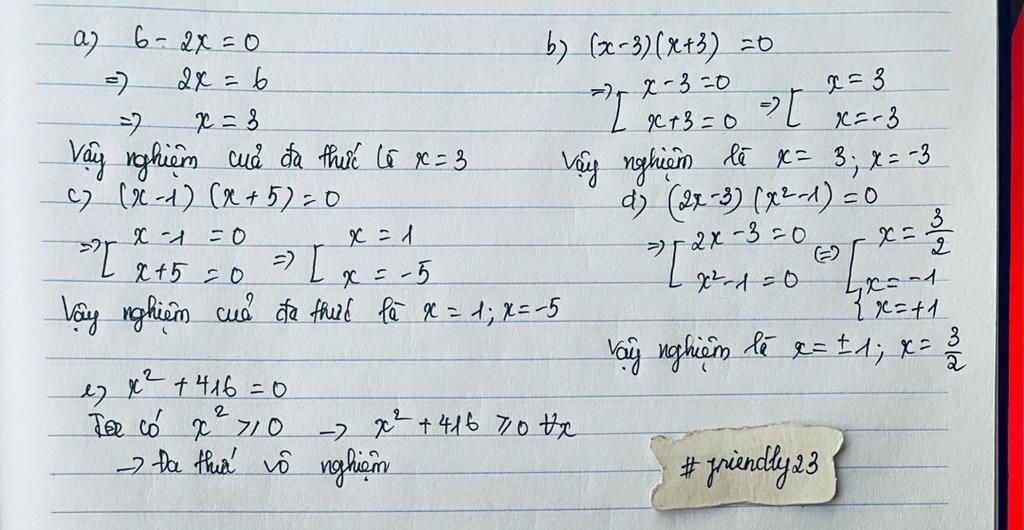 a) 6 - 2x = 0
=> 2x = 6
=> x = 3
Vậy nghiệm cuả đa thức là x = 3
b) (x-3)(x+3) = 0
=> [ x - 3 = 0 => [ x = 3
x + 3 = 0 x = -3
Vậy nghiệm là x = 3; x = -3
c) (x-1) (x+5) = 0
=> [ x - 1 = 0 => [ x = 1
x+5 = 0 x = -5
Vậy nghiệm cuả đa thức là x = 1; x = -5
d) (2x-3) (x²-1) = 0
=> [ 2x - 3 = 0 (=) [ x = 3/2
x² - 1 = 0 [ x = -1
{ x = +1
Vậy nghiệm là x = ±1; x = 3/2
e) x² + 416 = 0
Ta có x² ≥ 0 -> x² + 416 ≥ 0 ∀x
-> Đa thức vô nghiệm
# friendly23